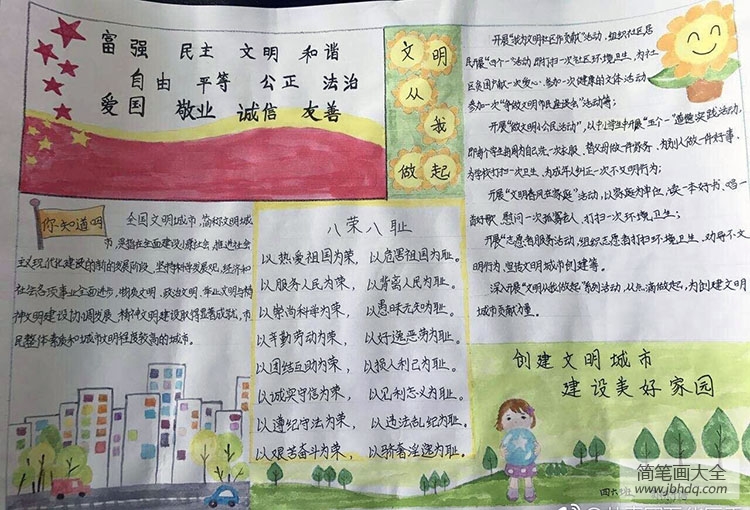 富强 民主 文明 和谐
自由 平等 公正 法治
爱国 敬业 诚信 友善
文明
从
我
做起
开展"我为文明社区作贡献"活动,组织社区居
民开展"四个一"活动,即打扫一次社区环境卫生,为社
区贫困户献一次爱心,参加一次健康的文体活动,
参加一次"争做文明市民座谈会"活动等;
开展"做文明小公民活动",以中小学生中开展"五个一"道德实践活动,
即每个学生每周为自己洗一次衣服、替父母做一件家务、为别人做一件好事、
为学校打扫一次卫生、为成年人纠正一次不文明行为;
开展"文明春风在家庭"活动,以家庭为单位,读一本好书、唱一
首好歌、慰问一次孤寡老人、打扫一次环境卫生;
开展"志愿者服务活动,组织志愿者打扫环境卫生、劝导不文
明行为、宣传文明城市创建等。
深入开展"文明从我做起"系列活动,从点滴做起,为创建文明
城市贡献力量。
你知道吗
全国文明城市,简称文明城
市,是指在全面建设小康社会,推进社会
主义现代化建设的新的发展阶段,坚持科学发展观,经济和
社会各项事业全面进步,物质文明、政治文明、精神文明与
精神文明建设协调发展,精神文明建设取得显著成就,市
民整体素质和城市文明程度较高的城市。
八荣八耻
以热爱祖国为荣,以危害祖国为耻。
以服务人民为荣,以背离人民为耻。
以崇尚科学为荣,以愚昧无知为耻。
以辛勤劳动为荣,以好逸恶劳为耻。
以团结互助为荣,以损人利己为耻。
以诚实守信为荣,以见利忘义为耻。
以遵纪守法为荣,以违法乱纪为耻。
以艰苦奋斗为荣,以骄奢淫逸为耻。
创建文明城市
建设美好家园
四六班
简笔画大全
www.jbhdq.com